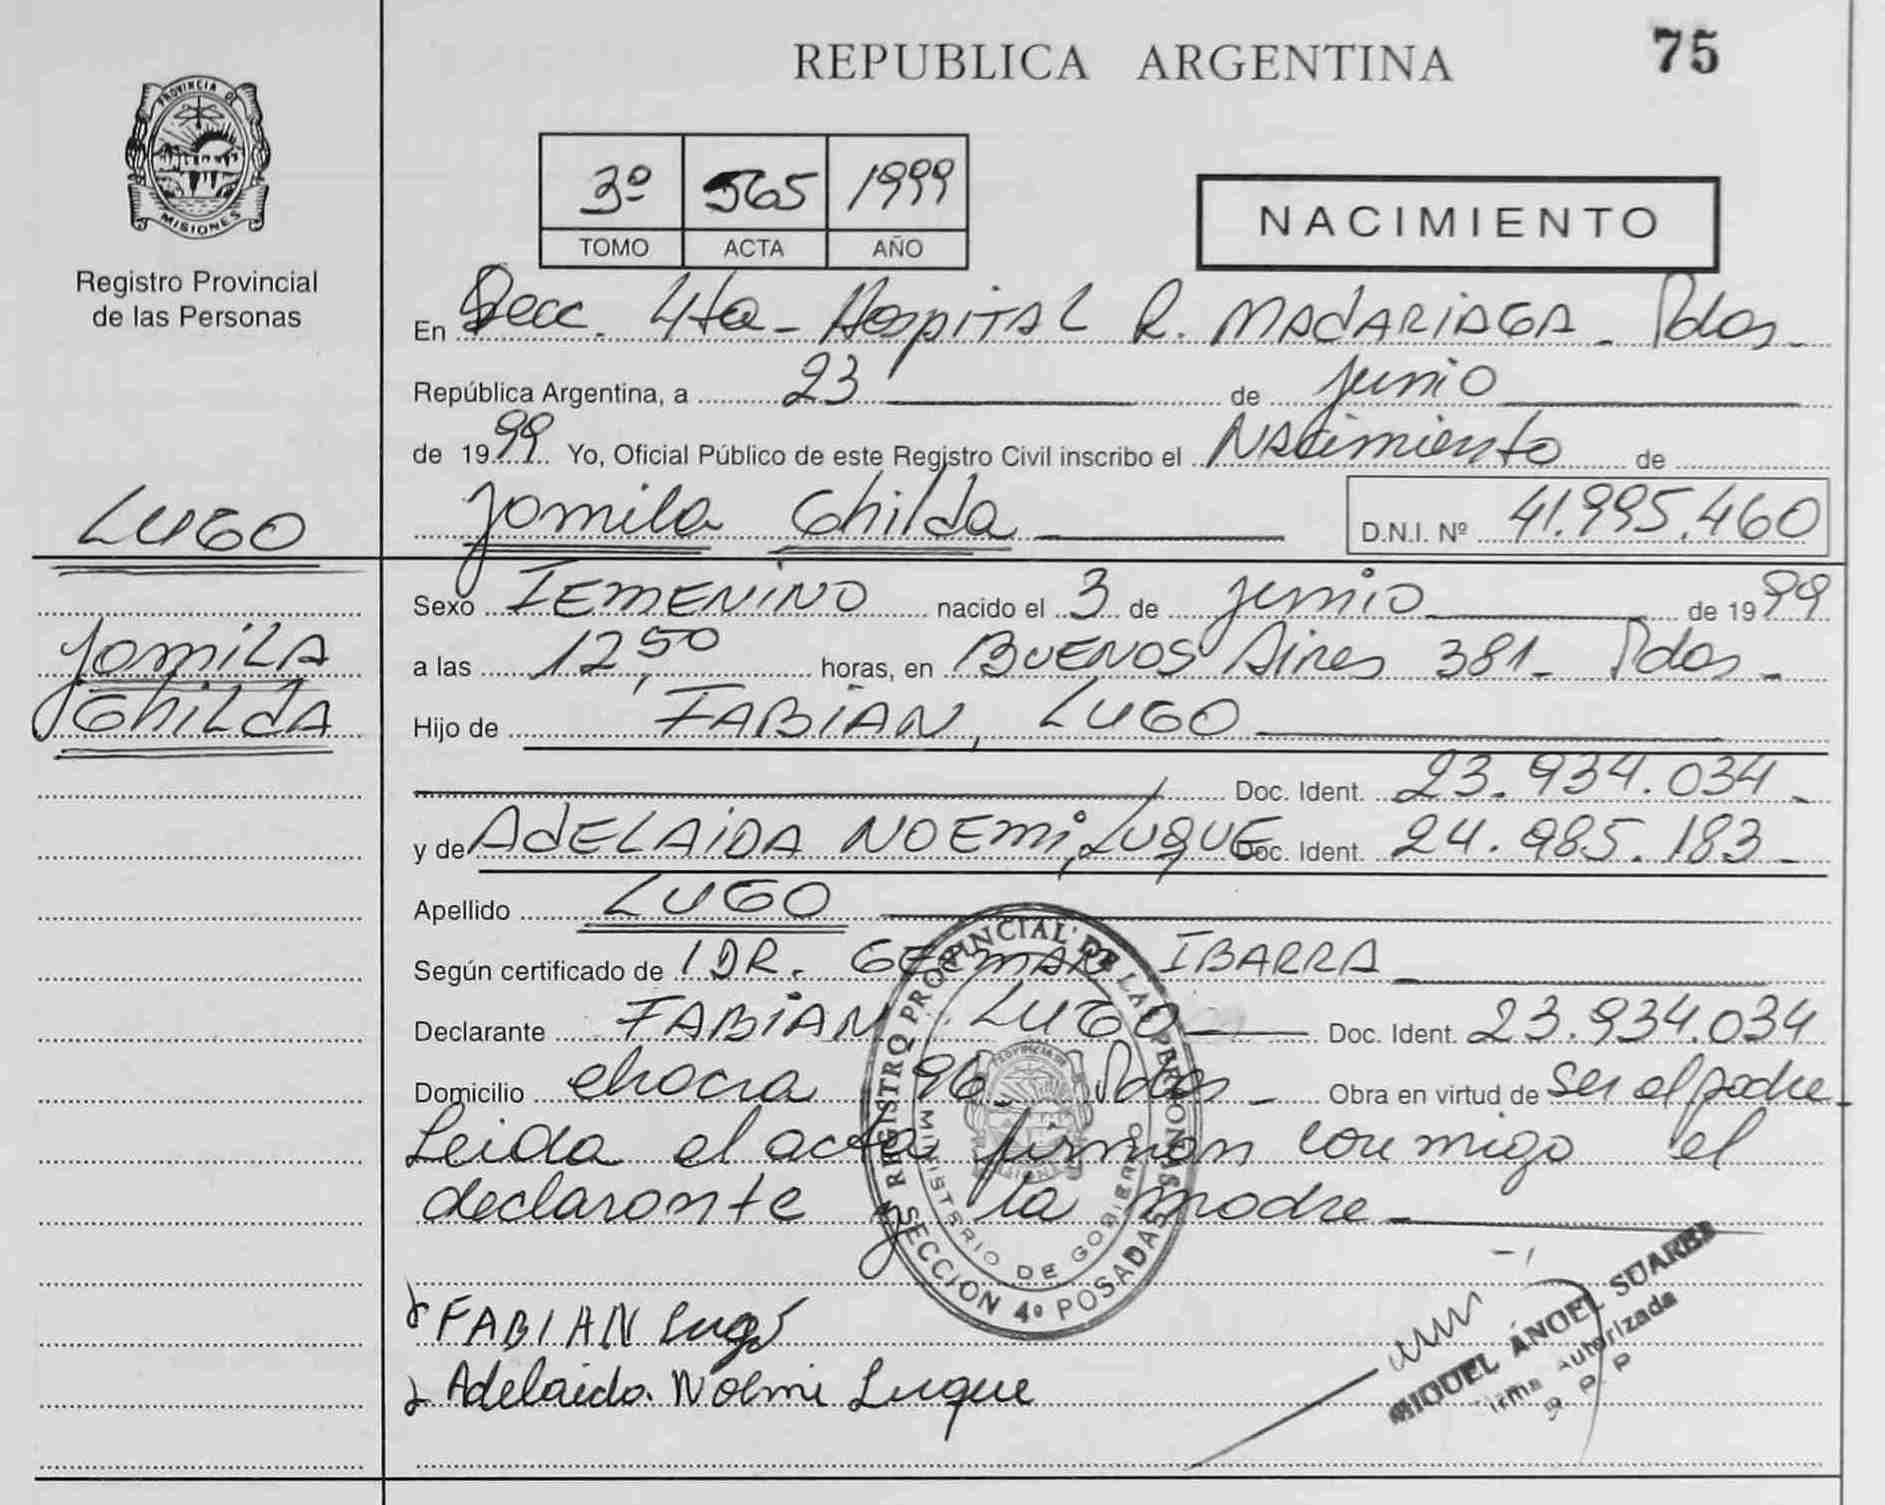 REPUBLICA ARGENTINA 75
PROVINCIA DE MISIONES
Registro Provincial
de las Personas
3º 565 1999
TOMO ACTA AÑO
NACIMIENTO
En Secc. 4ta - Hospital R. MADARIAGA - Pdas -
República Argentina, a 23 de junio
de 1999 Yo, Oficial Público de este Registro Civil inscribo el Nacimiento de
LUGO
Jamila Ghilda D.N.I. Nº 41.995.460
Sexo FEMENINO nacido el 3 de junio de 1999
JAMILA
GHILDA
a las 12,50 horas, en BUENOS Aires 381 - Pdas -
Hijo de FABIAN, LUGO
Doc. Ident. 23.934.034 -
y de ADELAIDA NOEMI, LUQUE Doc. Ident. 24.985.183 -
Apellido LUGO
Según certificado de DR. GERMAN IBARRA
Declarante FABIAN LUGO Doc. Ident. 23.934.034
Domicilio chacra 96 - Pdas - Obra en virtud de ser el padre
Leida el acta firman conmigo el
declarante y la madre -
REGISTRO PROVINCIAL DE LAS PERSONAS
MINISTERIO DE GOBIERNO
SECCION 4º POSADAS
FABIAN Lugo
Adelaida Noemi Luque
MIGUEL ÁNGEL SUAREZ
Firma Autorizada
R. P. P.